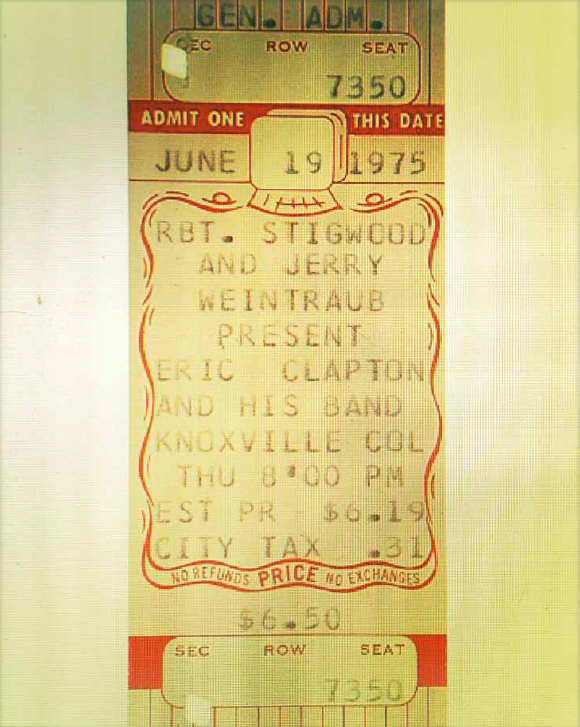 GEN. ADM.
SEC ROW SEAT
7350
ADMIT ONE THIS DATE
JUNE 19 1975
RBT. STIGWOOD
AND JERRY
WEINTRAUB
PRESENT
ERIC CLAPTON
AND HIS BAND
KNOXVILLE COL
THU 8:00 PM
EST PR $6.19
CITY TAX .31
NO REFUNDS PRICE NO EXCHANGES
$6.50
SEC ROW SEAT
7350